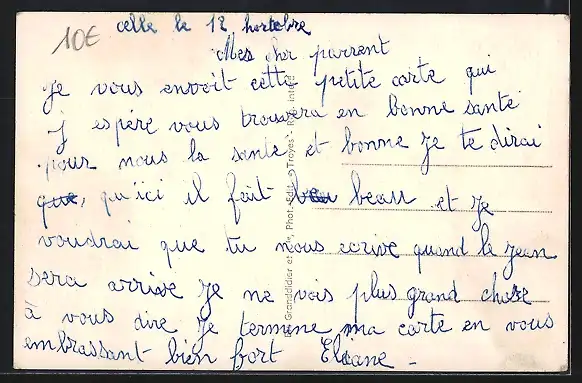 10€
celle le 12 hoctobre
Mes cher parrent
Je vous envoit cette petite carte qui
j espére vous trouvera en bonne santé
pour nous la sante et bonne Je te dirai
que, qu'ici il fait beau et Je
voudrai que tu nous ecrive quand le jean
sera arrive Je ne vois plus grand chose
à vous dire Je termine ma carte en vous
embrassant bien fort Eliane -
Granddidier et Cie, Phot.-Edit. - Troyes - Rep. interd.